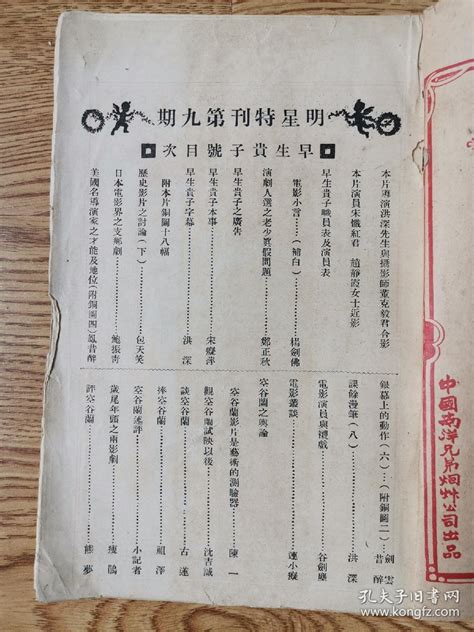 明星特刊第九期
早生貴子號目次
本片導演洪深先生與攝影師董克毅君合影
本片演員宋懺紅君 趙靜霞女士近影
早生貴子職員表及演員表
電影小言……(補白)……楊劍佛
演劇人選之老少眞假問題……鄭正秋
早生貴子之廣告
早生貴子本事……宋癡萍
早生貴子字幕……洪深
附本片銅圖十八幅
歷史影片之討論(下)……包天笑
日本電影界之支那劇……鮑振青
美國名導演家之才能及地位(附銅圖四)鳳昔醉
銀幕上的動作(六)…(附銅圖二)劍雲 昔醉
課餘漫筆(八)……洪深
電影演員與禮戲……谷劍塵
電影叢談……連小癡
空谷蘭之輿論
空谷蘭影片是藝術的測驗器……陳一
觀空谷蘭試映以後……沈吉誠
談空谷蘭……古蓮
捧空谷蘭……祖澤
空谷蘭述評……小記者
歲尾年頭之兩影劇……瘦鵑
評空谷蘭……熊夢
中國南洋兄弟烟艸公司出品
孔夫子旧书网
www.kongfz.com